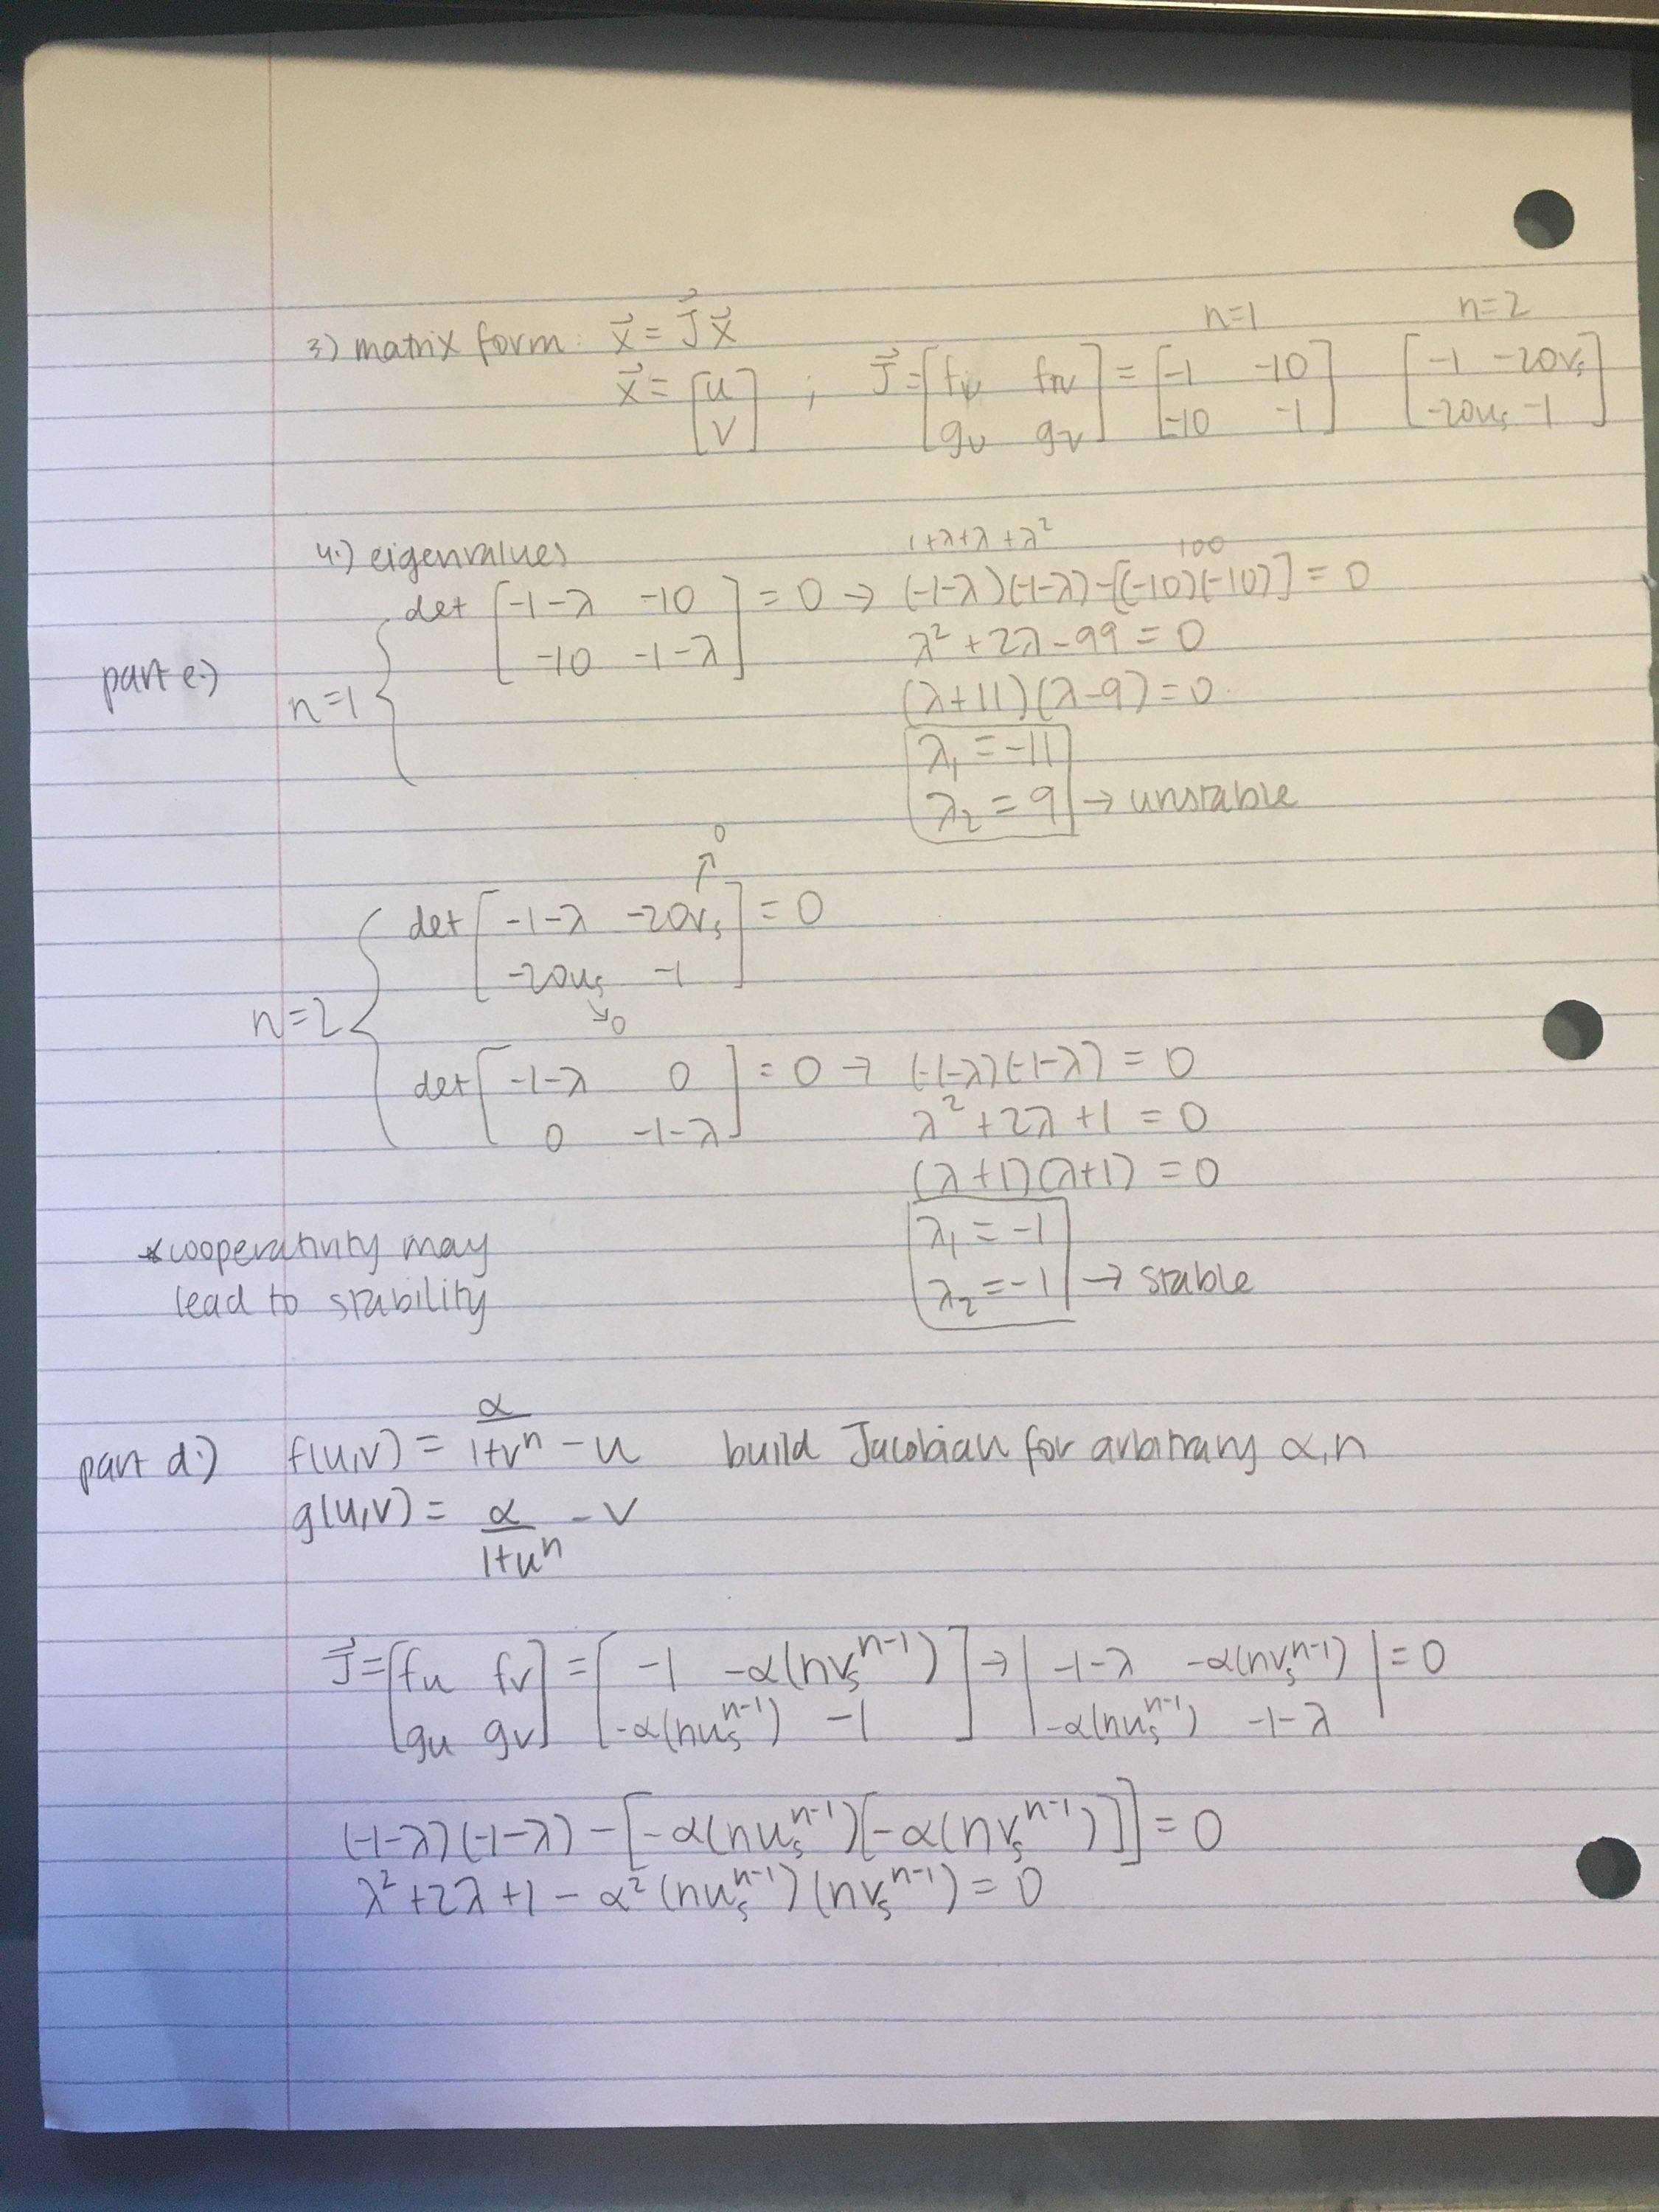 n=1 n=2
3) matrix form: x⃗ = J⃗x⃗
x⃗ = [u v] ; J⃗ = [fu fv gu gv] = [-1 -10 -10 -1] [-1 -20vₛ -20uₛ -1]
4.) eigenvalues
1+λ+λ+λ² 100
det [-1-λ -10 -10 -1-λ] = 0 → (-1-λ)(-1-λ)-[(-10)(-10)] = 0
λ²+2λ-99=0
part e.)
n=1
(λ+11)(λ-9)=0
λ₁ = -11
λ₂ = 9 → unstable
0
det [-1-λ -20vₛ -20uₛ -1] = 0
n=2
0
det [-1-λ 0 0 -1-λ] = 0 → (-1-λ)(-1-λ) = 0
λ²+2λ+1=0
(λ+1)(λ+1)=0
*cooperativity may
lead to stability
λ₁ = -1
λ₂ = -1 → stable
part d.) f(u,v) = α/(1+vⁿ) - u build Jacobian for arbitrary α,n
g(u,v) = α/(1+uⁿ) - v
J⃗ = [fu fv gu gv] = [-1 -α(nvₛⁿ⁻¹) -α(nuₛⁿ⁻¹) -1] → |-1-λ -α(nvₛⁿ⁻¹) -α(nuₛⁿ⁻¹) -1-λ| = 0
(-1-λ)(-1-λ) - [-α(nuₛⁿ⁻¹)[-α(nvₛⁿ⁻¹)]] = 0
λ²+2λ+1 - α²(nuₛⁿ⁻¹)(nvₛⁿ⁻¹) = 0